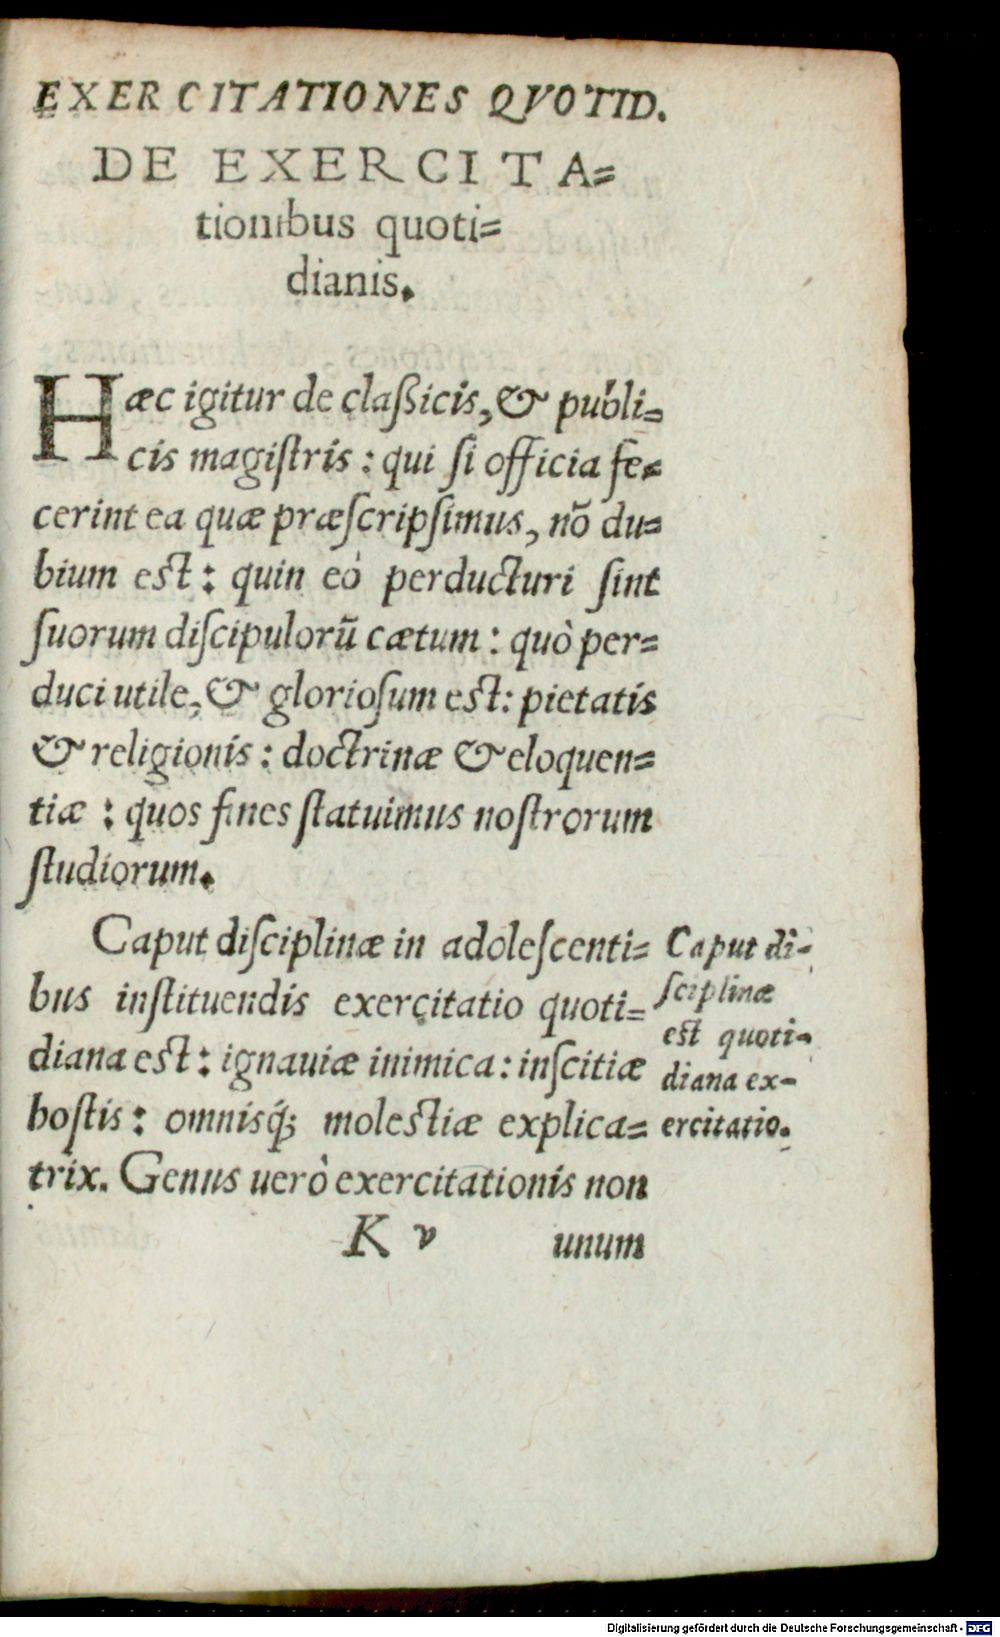 EXERCITATIONES QVOTID.
DE EXERCITA=
tionibus quoti=
dianis.
Hæc igitur de claßicis, & publi=
cis magiſtris: qui ſi officia fe=
cerint ea quæ præſcripſimus, nõ du=
bium eſt: quin eò perducturi ſint
ſuorum diſcipulorũ cætum: quò per=
duci utile, & glorioſum eſt: pietatis
& religionis: doctrinæ & eloquen=
tiæ: quos fines ſtatuimus noſtrorum
ſtudiorum.
Caput diſciplinæ in adoleſcenti=
bus inſtituendis exercitatio quoti=
diana eſt: ignauiæ inimica: inſcitiæ
hoſtis: omnisq́; moleſtiæ explica=
trix. Genus uerò exercitationis non
K v
unum
Caput di=
ſciplinæ
eſt quoti=
diana ex=
ercitatio.
Digitalisierung gefördert durch die Deutsche Forschungsgemeinschaft - DFG